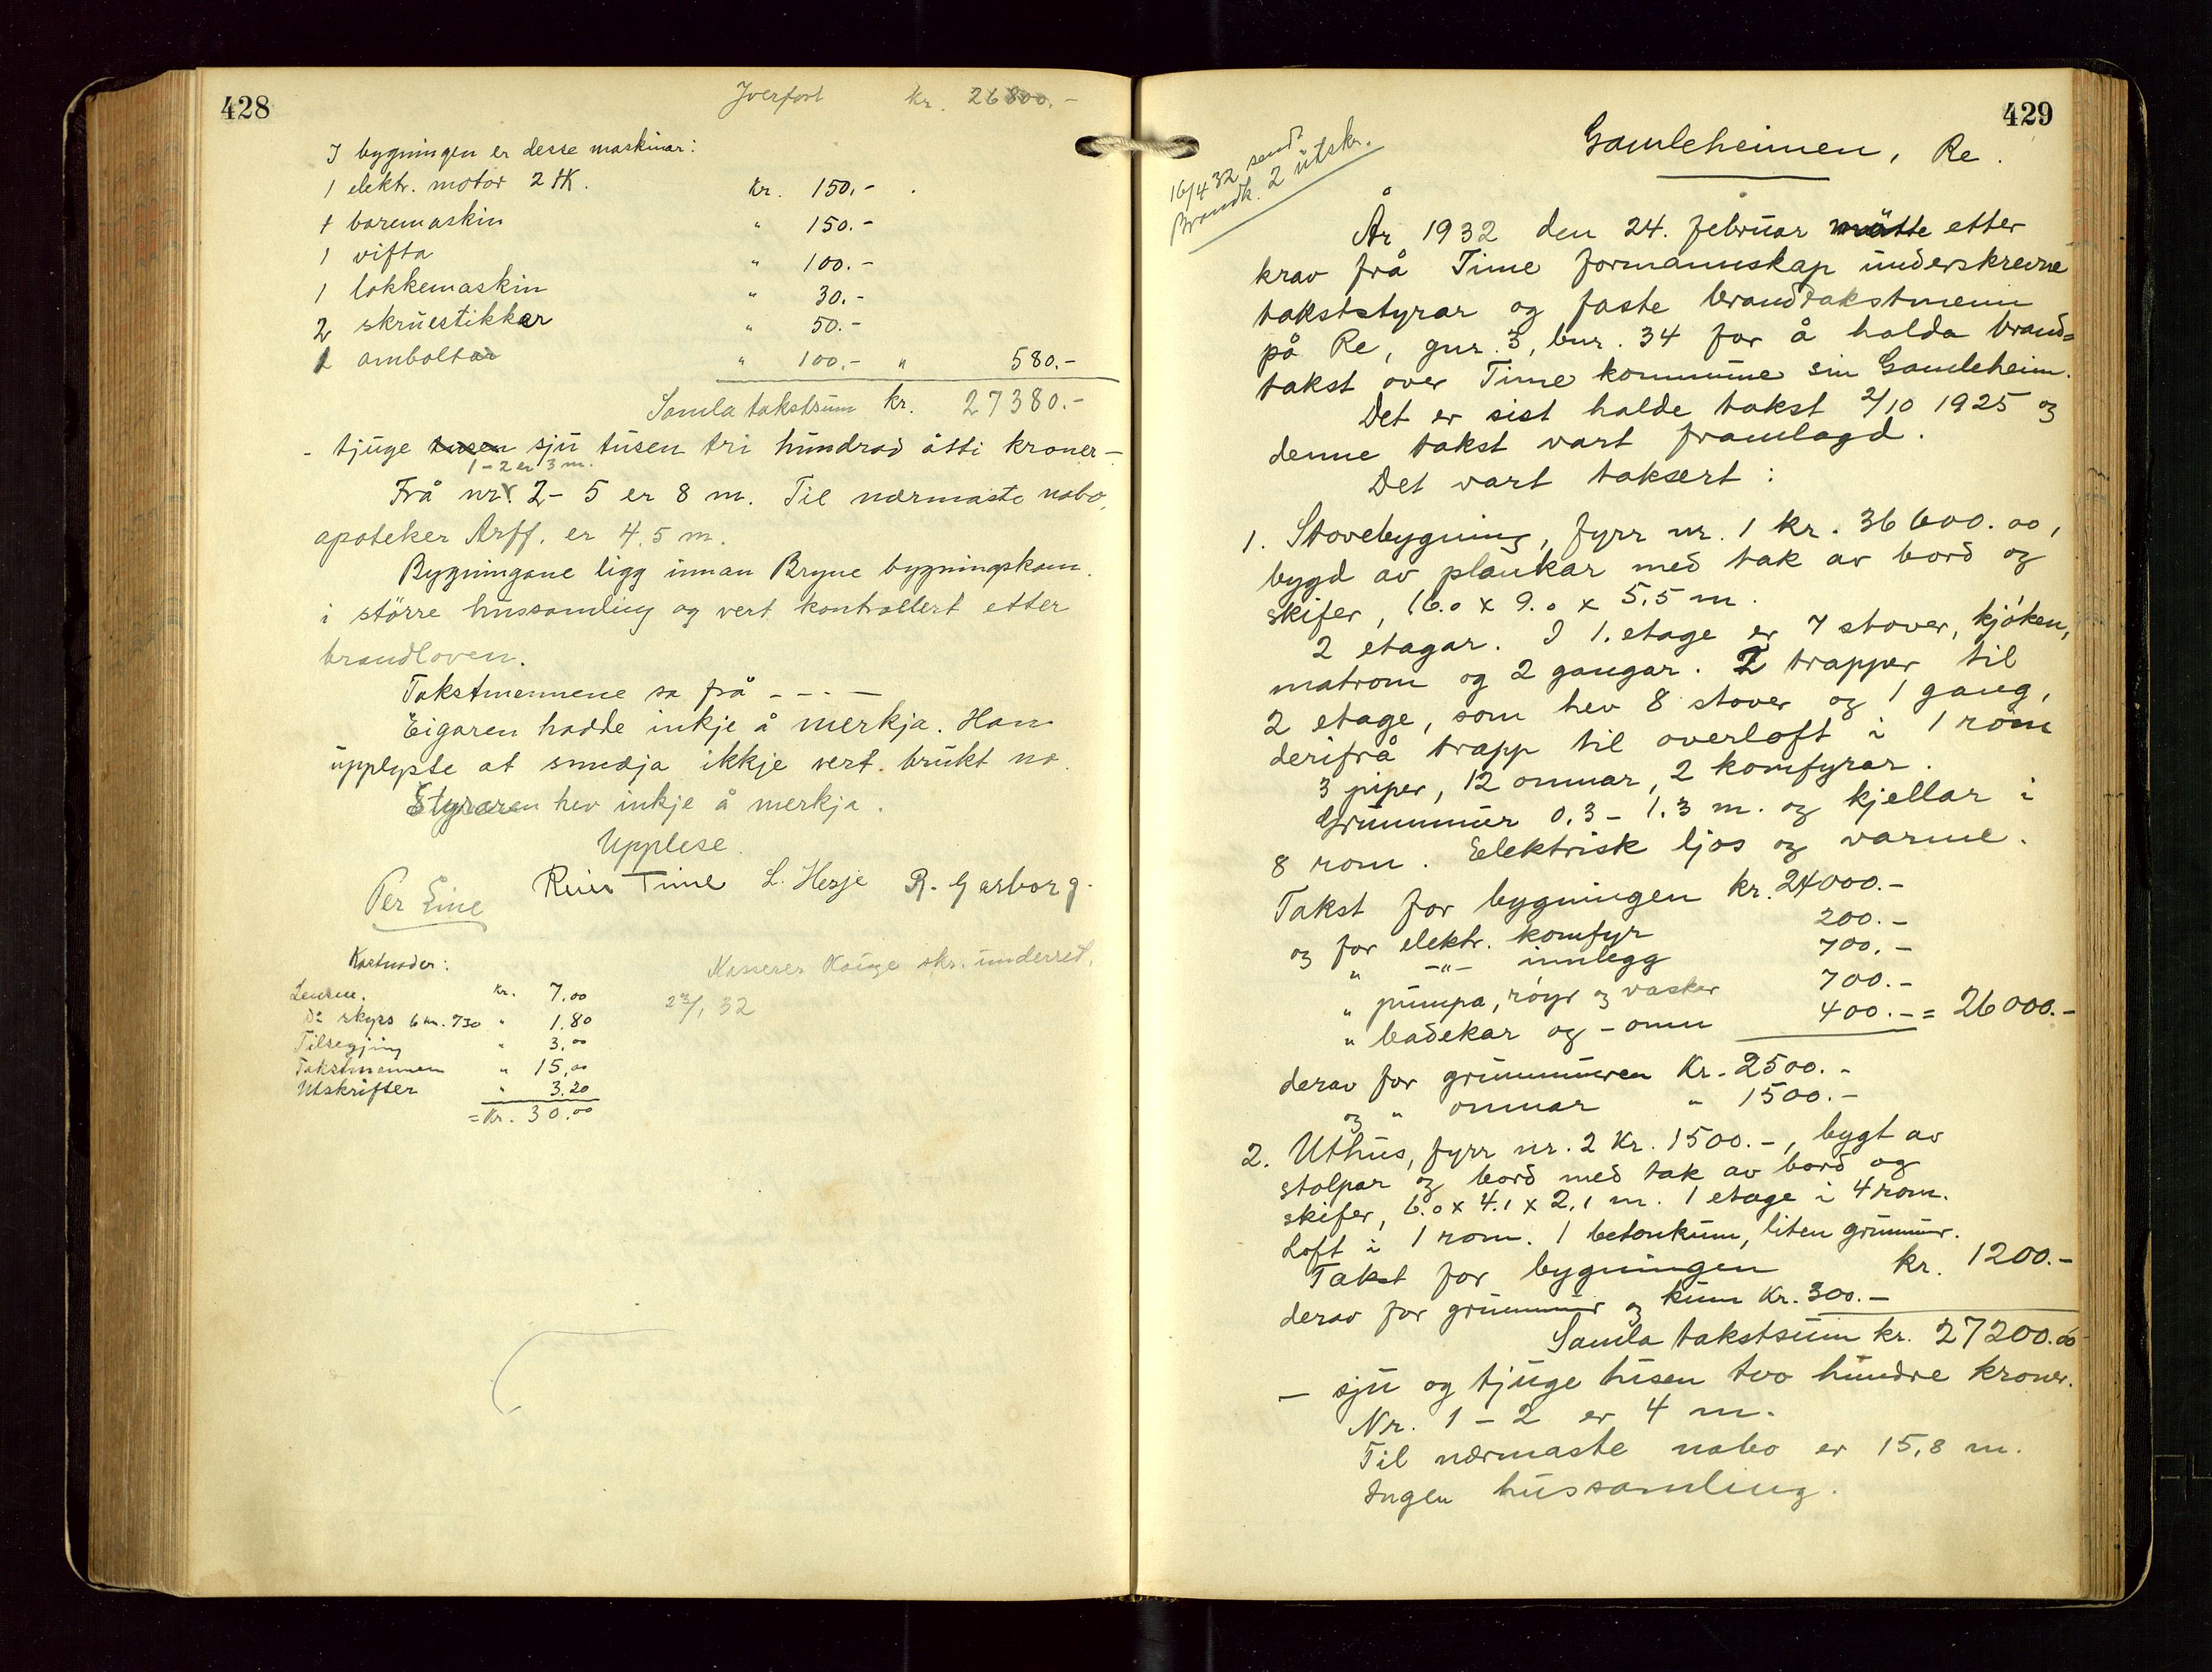 428
Yverført kr. 26800.-
I bygningen er desse maskinar:
1 elektr. motor 2 HK. Kr. 150.-
1 boremaskin " 150.-
1 vifta " 100.-
1 lokkemaskin " 30.-
2 skruestikker " 50.-
1 amboltar " 100.- " 580.-
Samla takstsum kr. 27380.-
- tjuge tusen sju tusen tri hundrad åtti kroner -
1-2 er 3 m.
Frå nr. 2-5 er 8 m. Til nærmaste nabo,
apoteker Arff. er 4.5 m.
Bygningane ligg innan Bryne bygningskom.
i större hussamling og vert kontrollert etter
brandloven.
Takstmennene sa frå - - - -
Eigaren hadde inkje å merkja. Han
upplyste at smedja ikkje vert brukt no.
Styraren hev inkje å merkja.
Upplese.
Per Line Reier Time L. Hesje R. Garborg.
Kostnader:
Kasserer Kauge skr. underret.
23/1 32
Lensm. Kr. 7.00
Do skyss 6 km. 730 " 1.80
Tilsegjing " 3.00
Takstmennen " 15.00
Utskrifter " 3.20
= Kr. 30.00
429
16/4 32 send
Brandk. 2 utskr.
Gamleheimen, Re.
År 1932 den 24. februar møtte etter
krav frå Time formannskap underskrevne
takststyrar og faste brandtakstmenn
på Re, gnr. 3, bnr. 34 for å halda brand=
takst over Time kommune sin Gamleheim.
Det er sist halde takst 2/10 1925 og
denne takst vart framlagd.
Det vart taksert:
1. Stovebygning, fyrr nr. 1 kr. 36600.00,
bygd av plankar med tak av bord og
skifer, 16.0 x 9.0 x 5.5 m.
2 etagar. I 1. etage er 7 stover, kjöken,
matrom og 2 gangar. 2 trapper til
2 etage, som hev 8 stover og 1 gang,
derifrå trapp til overloft i 1 rom
3 piper, 12 omnar, 2 komfyrar.
Grunnmur 0.3 - 1.3 m. og kjellar i
8 rom. Elektrisk ljos og varme.
Takst for bygningen kr. 24000.-
og for elektr. komfyr 200.-
" -"- innlegg 700.-
" pumpa, röyr og vasker 700.-
" badekar og - omn 400.- = 26000.-
derav for grunnmuren Kr. 2500.-
og " omnar " 1500.-
2. Uthus, fyrr nr. 2 Kr. 1500.-, bygt av
stolpar og bord med tak av bord og
skifer, 6.0 x 4.1 x 2.1 m. 1 etage i 4 rom.
Loft i 1 rom. 1 betonkum, liten grunmur.
Takst for bygningen kr. 1200.-
derav for grunnmur og kum Kr. 300.-
Samla takstsum kr. 27200.00
- sju og tjuge tusen tvo hundre kroner.
Nr. 1 - 2 er 4 m.
Til nærmaste nabo er 15,8 m.
Ingen hussamling.